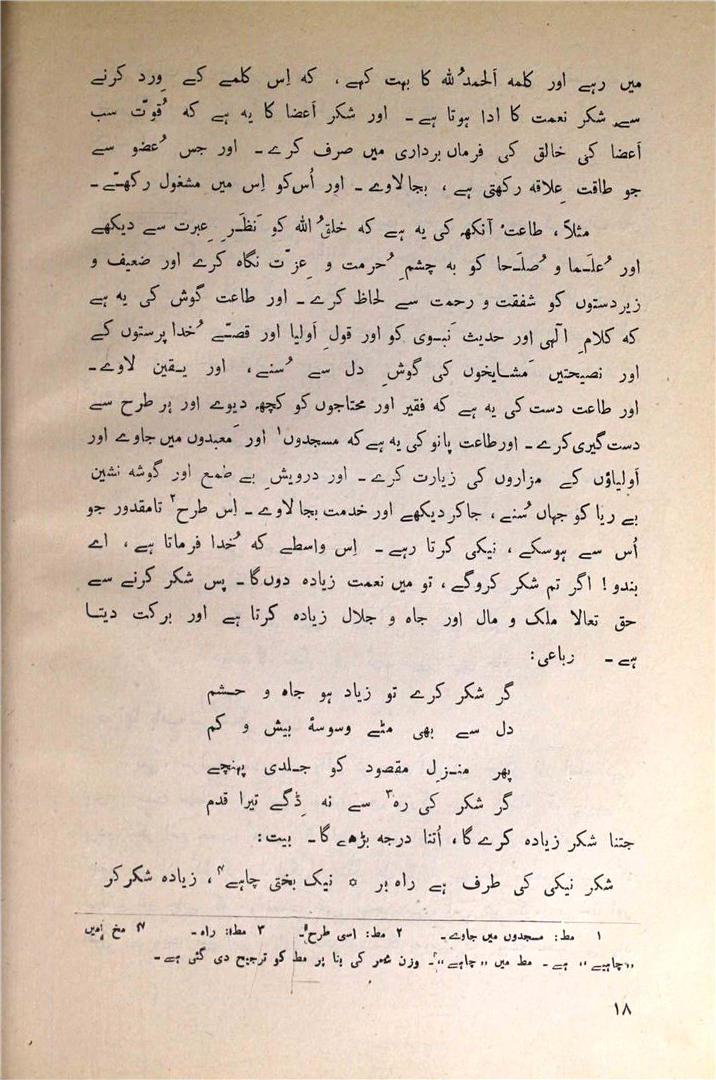 میں رہے اور کلمہ اَلحمدُ للہ کا بہت کہے، کہ اِس کلمے کے وِرد کرنے
سے شکر نعمت کا ادا ہوتا ہے۔ اور شکر اَعضا کا یہ ہے کہ قُوّت سب
اَعضا کی خالق کی فرماں برداری میں صرف کرے۔ اور جس عُضو سے
جو طاقت عِلاقہ رکھتی ہے، بجا لاوے۔ اور اُس کو اِس میں مشغول رکھے۔
مثلاً، طاعت آنکھ کی یہ ہے کہ خلقُ اللہ کو نَظَرِ عِبرت سے دیکھے
اور عُلَما و صُلَحا کو بہ چشمِ حُرمت و عِزّت نگاہ کرے اور ضعیف و
زیردستوں کو شفقت و رحمت سے لحاظ کرے۔ اور طاعت گوش کی یہ ہے
کہ کلامِ اِلٰہی اور حدیث نَبوی کو اور قولِ اَولیا اور قصّے خُدا پرستوں کے
اور نصیحتیں مَشایخوں کی گوشِ دل سے سُنے، اور یقین لاوے۔
اور طاعت دست کی یہ ہے کہ فقیر اور محتاجوں کو کچھ دیوے اور ہر طرح سے
دست گیری کرے۔ اور طاعت پانو کی یہ ہے کہ مسجدوں۱ اور مَعبدوں میں جاوے اور
اَولیاؤں کے مزاروں کی زیارت کرے۔ اور درویشِ بے طمع اور گوشہ نشین
بے ریا کو جہاں سُنے، جا کر دیکھے اور خدمت بجا لاوے۔ اِس طرح۲ تامقدور جو
اُس سے ہوسکے، نیکی کرتا رہے۔ اِس واسطے کہ خُدا فرماتا ہے، اے
بندو! اگر تم شکر کروگے، تو میں نعمت زیادہ دوں گا۔ پس شکر کرنے سے
حق تعالا ملک و مال اور جاہ و جلال زیادہ کرتا ہے اور برکت دیتا
ہے۔ رباعی:
گر شکر کرے تو زیاد ہو جاہ و حشم
دل سے بھی مٹے وسوسۂ بیش و کم
پھر منزلِ مقصود کو جلدی پہنچے
گر شکر کی رہ۳ سے نہ ڈِگے تیرا قدم
جتنا شکر زیادہ کرے گا، اُتنا درجہ بڑھے گا۔ بیت:
شکر نیکی کی طرف ہے راہ بر * نیک بختی چاہے۴، زیادہ شکر کر
۱ مط: مسجدوں میں جاوے۔ ۲ مط: اسی طرح۔ ۳ مط: راہ۔ ۴ مخ میں
”چاہیے“ ہے۔ مط میں ”چاہے“۔ وزن شعر کی بنا پر مط کو ترجیح دی گئی ہے۔
۱۸